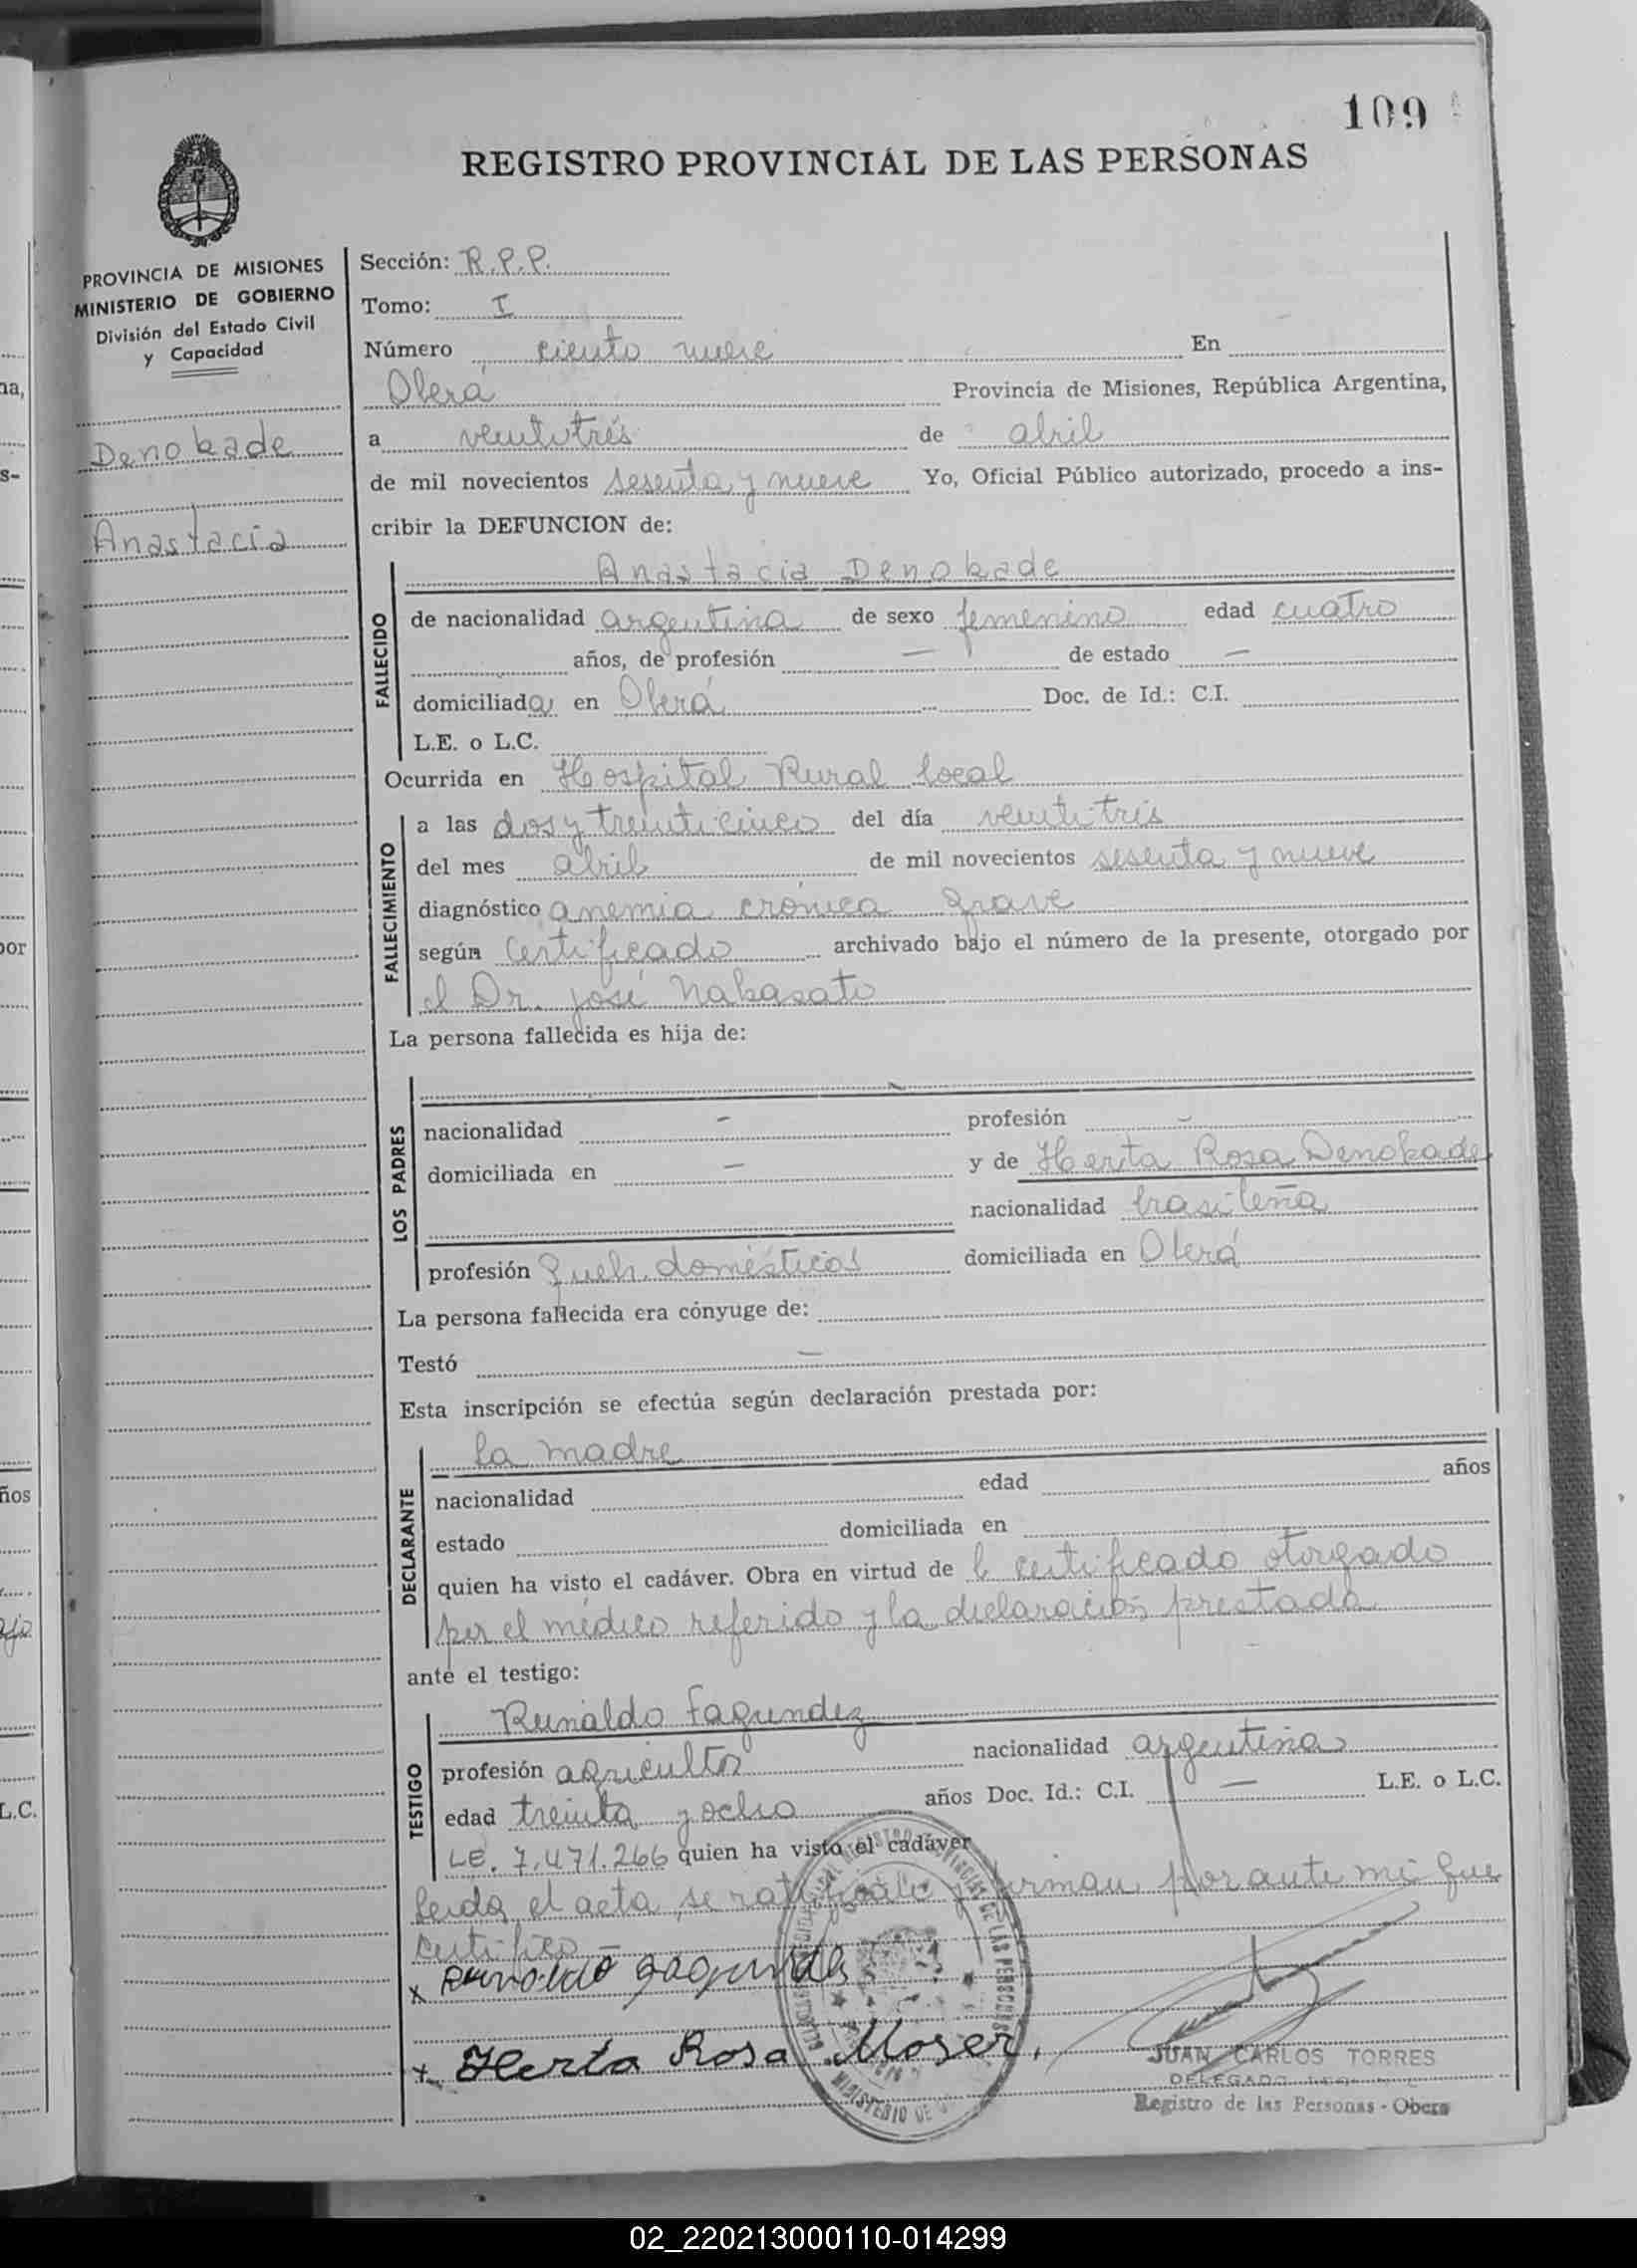 109
REGISTRO PROVINCIAL DE LAS PERSONAS
PROVINCIA DE MISIONES
MINISTERIO DE GOBIERNO
División del Estado Civil
y Capacidad
Denokade
Anastacia
Sección: R.P.P.
Tomo: I
Número ciento nueve En
Oberá Provincia de Misiones, República Argentina,
a veintitrés de abril
de mil novecientos sesenta y nueve Yo, Oficial Público autorizado, procedo a ins-
cribir la DEFUNCION de:
FALLECIDO
Anastacia Denokade
de nacionalidad argentina de sexo femenino edad cuatro
años, de profesión — de estado —
domiciliada en Oberá Doc. de Id.: C.I.
L.E. o L.C.
Ocurrida en Hospital Rural local
FALLECIMIENTO
a las dos y treinticinco del día veintitrés
del mes abril de mil novecientos sesenta y nueve
diagnóstico anemia crónica grave
según certificado archivado bajo el número de la presente, otorgado por
el Dr. José Nakasato
La persona fallecida es hija de:
LOS PADRES
nacionalidad — profesión —
domiciliada en — y de Herta Rosa Denokade
nacionalidad brasileña
profesión Queh. domésticos domiciliada en Oberá
La persona fallecida era cónyuge de:
Testó —
Esta inscripción se efectúa según declaración prestada por:
DECLARANTE
la madre
nacionalidad edad años
estado domiciliada en
quien ha visto el cadáver. Obra en virtud de l certificado otorgado
por el médico referido y la declaración prestada
ante el testigo:
TESTIGO
Reinaldo Fagundez
profesión agricultor nacionalidad argentina
edad treinta y ocho años Doc. Id.: C.I. — L.E. o L.C.
LE. 7.471.266 quien ha visto el cadáver
Leída el acta, se ratifican y firman por ante mi que
certifico.—
x
x Herta Rosa Moser.
JUAN CARLOS TORRES
DELEGADO
Registro de las Personas - Obera
MINISTERIO DE
02_220213000110-014299